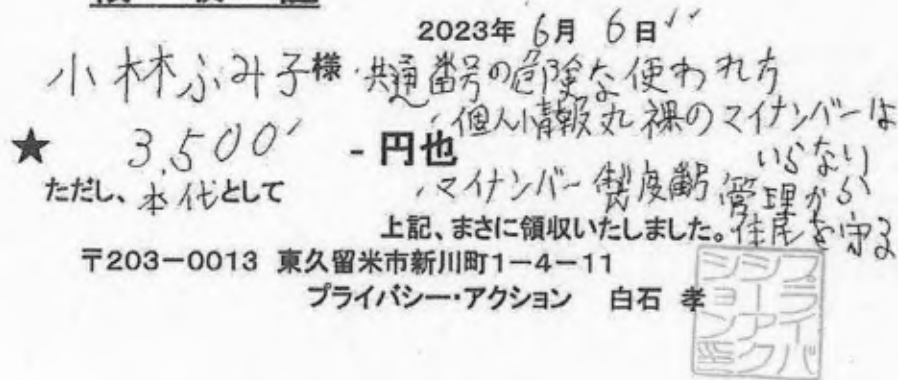 領収証
2023年 6月 6日
小林ふみ子様
・共通番号の危険な使われ方
・個人情報丸裸のマイナンバーはいらない
★ 3,500 -円也
・マイナンバー制度番号管理から住民を守る
ただし、本代として
上記、まさに領収いたしました。
〒203-0013 東久留米市新川町1-4-11
プライバシー・アクション 白石 孝
プライバシーアクション